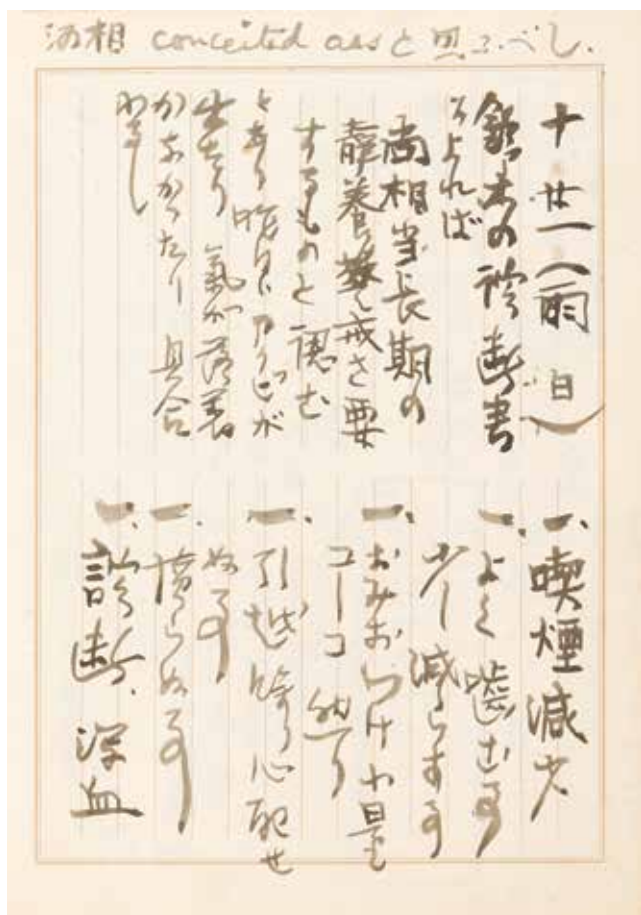 酒相 conceited ass と思ふべし.
十 廿一(雨 日)
鈴木の診断書
によれば
尚相当長期の
静養養戒を要
するものと認む
とあり 昨日アクビが
出たり 気が落着
かなかったり 具合
わるし
一、喫煙減少
一、よく噛む事
少し減らす事
一、おみおつけ少量
コーコ 他
一、引越 心配せ
ぬ事
一、憤らぬ事
一、診断、深血